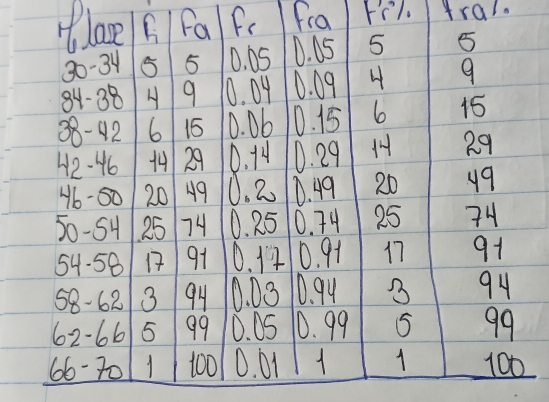 Clase fi Fa fr fra Fr% fra%
30-34 5 5 0.05 0.05 5 5
34-38 4 9 0.04 0.09 4 9
38-42 6 15 0.06 0.15 6 15
42-46 14 29 0.14 0.29 14 29
46-50 20 49 0.2 0.49 20 49
50-54 25 74 0.25 0.74 25 74
54-58 17 91 0.17 0.91 17 91
58-62 3 94 0.03 0.94 3 94
62-66 5 99 0.05 0.99 5 99
66-70 1 100 0.01 1 1 100